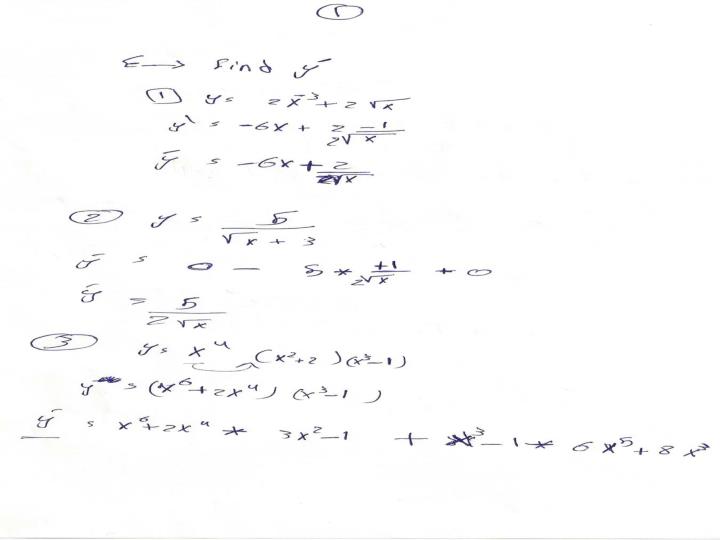 1
E → find y⁻
① y = 2x⁻³ + 2√x
y' = -6x + 2 -1/2√x
y⁻ = -6x + 2/2√x
② y = 5/√x + 3
y⁻ = 0 - 5 * +1/2√x + 0
y⁻ = 5/2√x
③ y = x⁴ (x²+2)(x³-1)
y = (x⁶+2x⁴) (x³-1)
y⁻ = x⁶+2x⁴ * 3x²-1 + x³-1 * 6x⁵+8x³